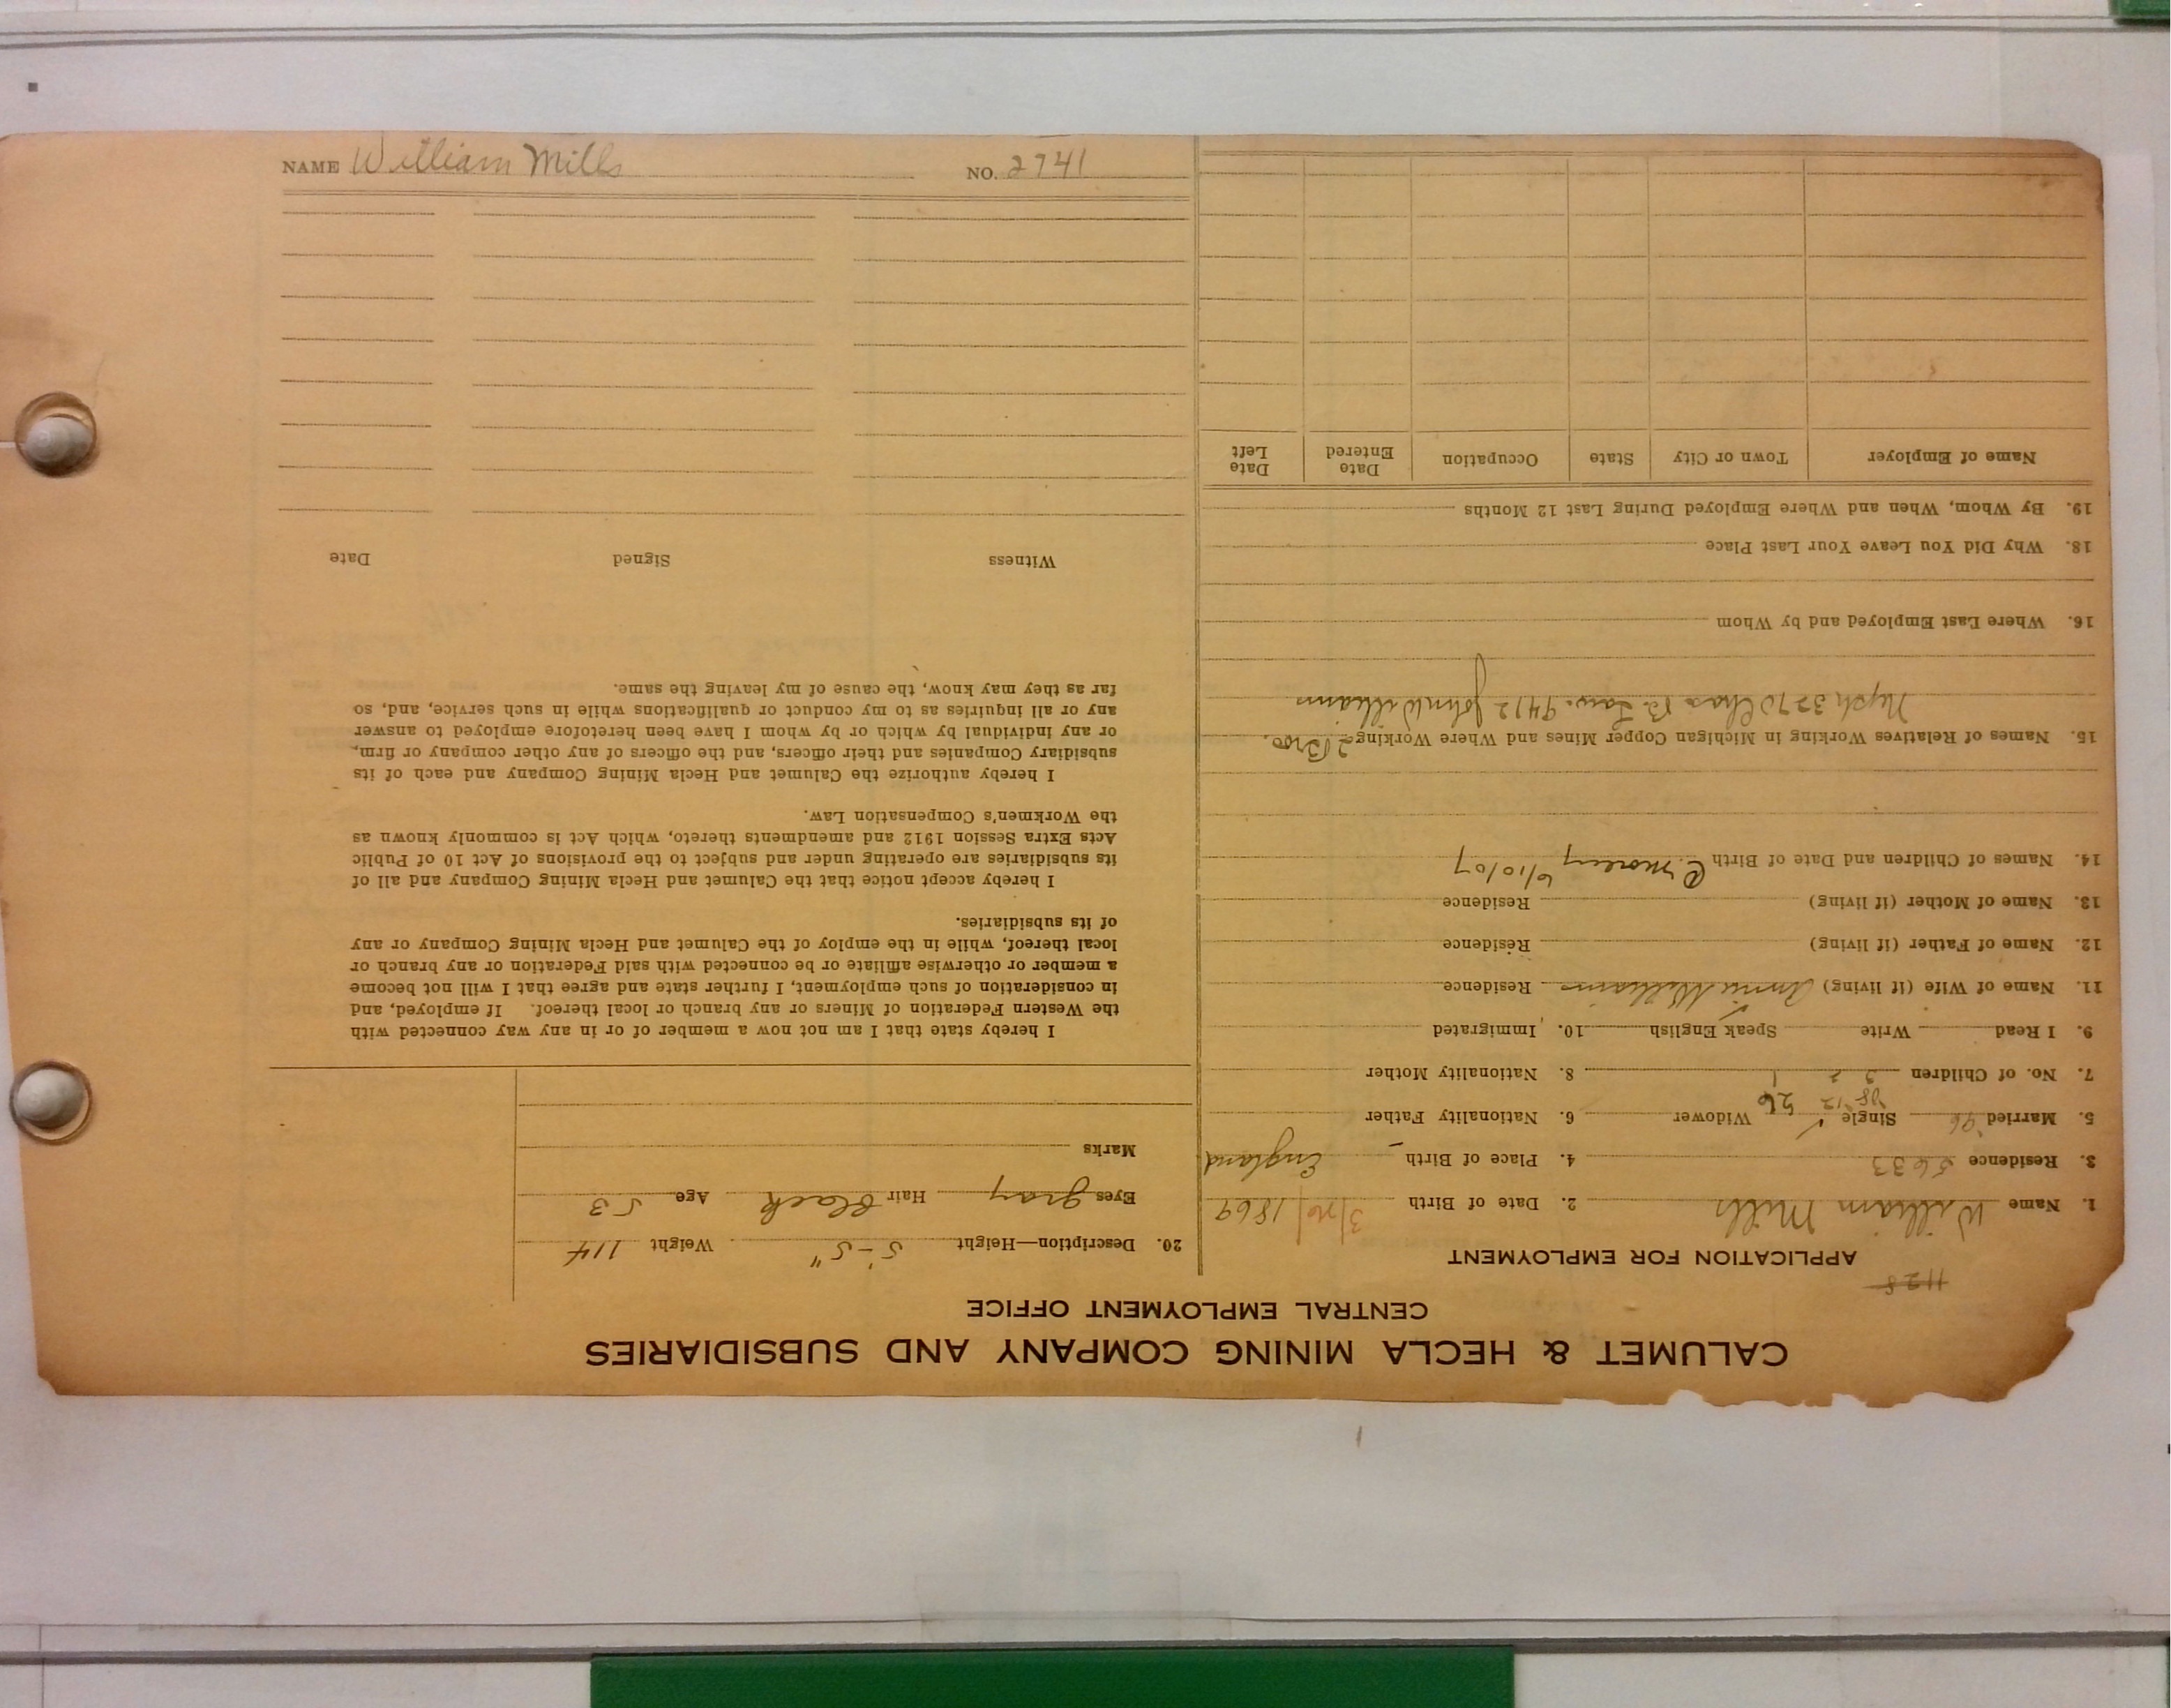 CALUMET & HECLA MINING COMPANY AND SUBSIDIARIES
CENTRAL EMPLOYMENT OFFICE
1128
APPLICATION FOR EMPLOYMENT
1. Name William Mills 2. Date of Birth 3/26/1869
3. Residence 5633 4. Place of Birth England
5. Married '96 Single '08 '12 Widower 26 6. Nationality Father
7. No. of Children 3 2 1 8. Nationality Mother
9. I Read Write Speak English 10. Immigrated
11. Name of Wife (if living) Annie Williams Residence
12. Name of Father (if living) Residence
13. Name of Mother (if living) Residence
14. Names of Children and Date of Birth 6/10/07
15. Names of Relatives Working in Michigan Copper Mines and Where Working 2 Bros.
Neph 3270 Chas B. Law. 9412 John Williams
16. Where Last Employed and by Whom
18. Why Did You Leave Your Last Place
19. By Whom, When and Where Employed During Last 12 Months
Name of Employer Town or City State Occupation Date Entered Date Left
20. Description—Height 5'-5" Weight 114
Eyes gray Hair Black Age 53
Marks
I hereby state that I am not now a member of or in any way connected with
the Western Federation of Miners or any branch or local thereof. If employed, and
in consideration of such employment, I further state and agree that I will not become
a member or otherwise affiliate or be connected with said Federation or any branch or
local thereof, while in the employ of the Calumet and Hecla Mining Company or any
of its subsidiaries.
I hereby accept notice that the Calumet and Hecla Mining Company and all of
its subsidiaries are operating under and subject to the provisions of Act 10 of Public
Acts Extra Session 1912 and amendments thereto, which Act is commonly known as
the Workmen's Compensation Law.
I hereby authorize the Calumet and Hecla Mining Company and each of its
subsidiary Companies and their officers, and the officers of any other company or firm,
or any individual by which or by whom I have been heretofore employed to answer
any or all inquiries as to my conduct or qualifications while in such service, and, so
far as they may know, the cause of my leaving the same.
Witness Signed Date
NAME William Mills NO. 2741